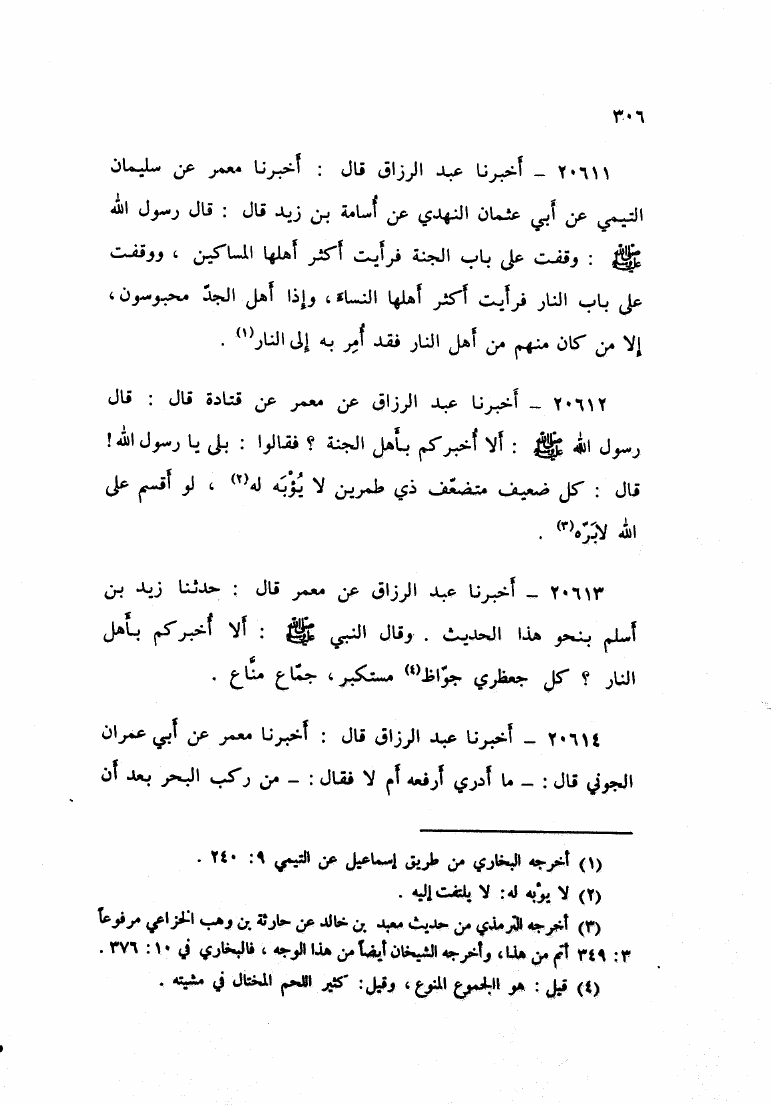 ٣٠٦
٢٠٦١١ – أخبرنا عبد الرزاق قال : أخبرنا معمر عن سليمان
التيمي عن أبي عثمان النهدي عن أُسامة بن زيد قال : قال رسول الله
ﷺ : وقفت على باب الجنة فرأيت أكثر أهلها المساكين ، ووقفت
على باب النار فرأيت أكثر أهلها النساء ، وإذا أهل الجدّ محبوسون ،
إلا من كان منهم من أهل النار فقد أُمِر به إلى النار(١) .
٢٠٦١٢ – أخبرنا عبد الرزاق عن معمر عن قتادة قال : قال
رسول الله ﷺ : ألا أُخبركم بأهل الجنة ؟ فقالوا : بلى يا رسول الله !
قال : كل ضعيف متضعّف ذي طمرين لا يُؤْبَه له(٢) ، لو أقسم على
الله لأبَرّه(٣) .
٢٠٦١٣ – أخبرنا عبد الرزاق عن معمر قال : حدثنا زيد بن
أسلم بنحو هذا الحديث . وقال النبي ﷺ : ألا أُخبركم بأهل
النار ؟ كل جعظري جوّاظ(٤) مستكبر ، جمّاع منَّاع .
٢٠٦١٤ – أخبرنا عبد الرزاق قال : أخبرنا معمر عن أبي عمران
الجوني قال : – ما أدري أرفعه أم لا فقال : – من ركب البحر بعد أن
(١) أخرجه البخاري من طريق إسماعيل عن التيمي ٩ : ٢٤٠ .
(٢) لا يؤبه له : لا يلتفت إليه .
(٣) أخرجه الترمذي من حديث معبد بن خالد عن حارثة بن وهب الخزاعي مرفوعاً
٣ : ٣٤٩ أتم من هذا ، وأخرجه الشيخان أيضاً من هذا الوجه ، فالبخاري في ١٠ : ٣٧٦ .
(٤) قيل : هو االجموع المنوع ، وقيل : كثير اللحم المختال في مشيته .